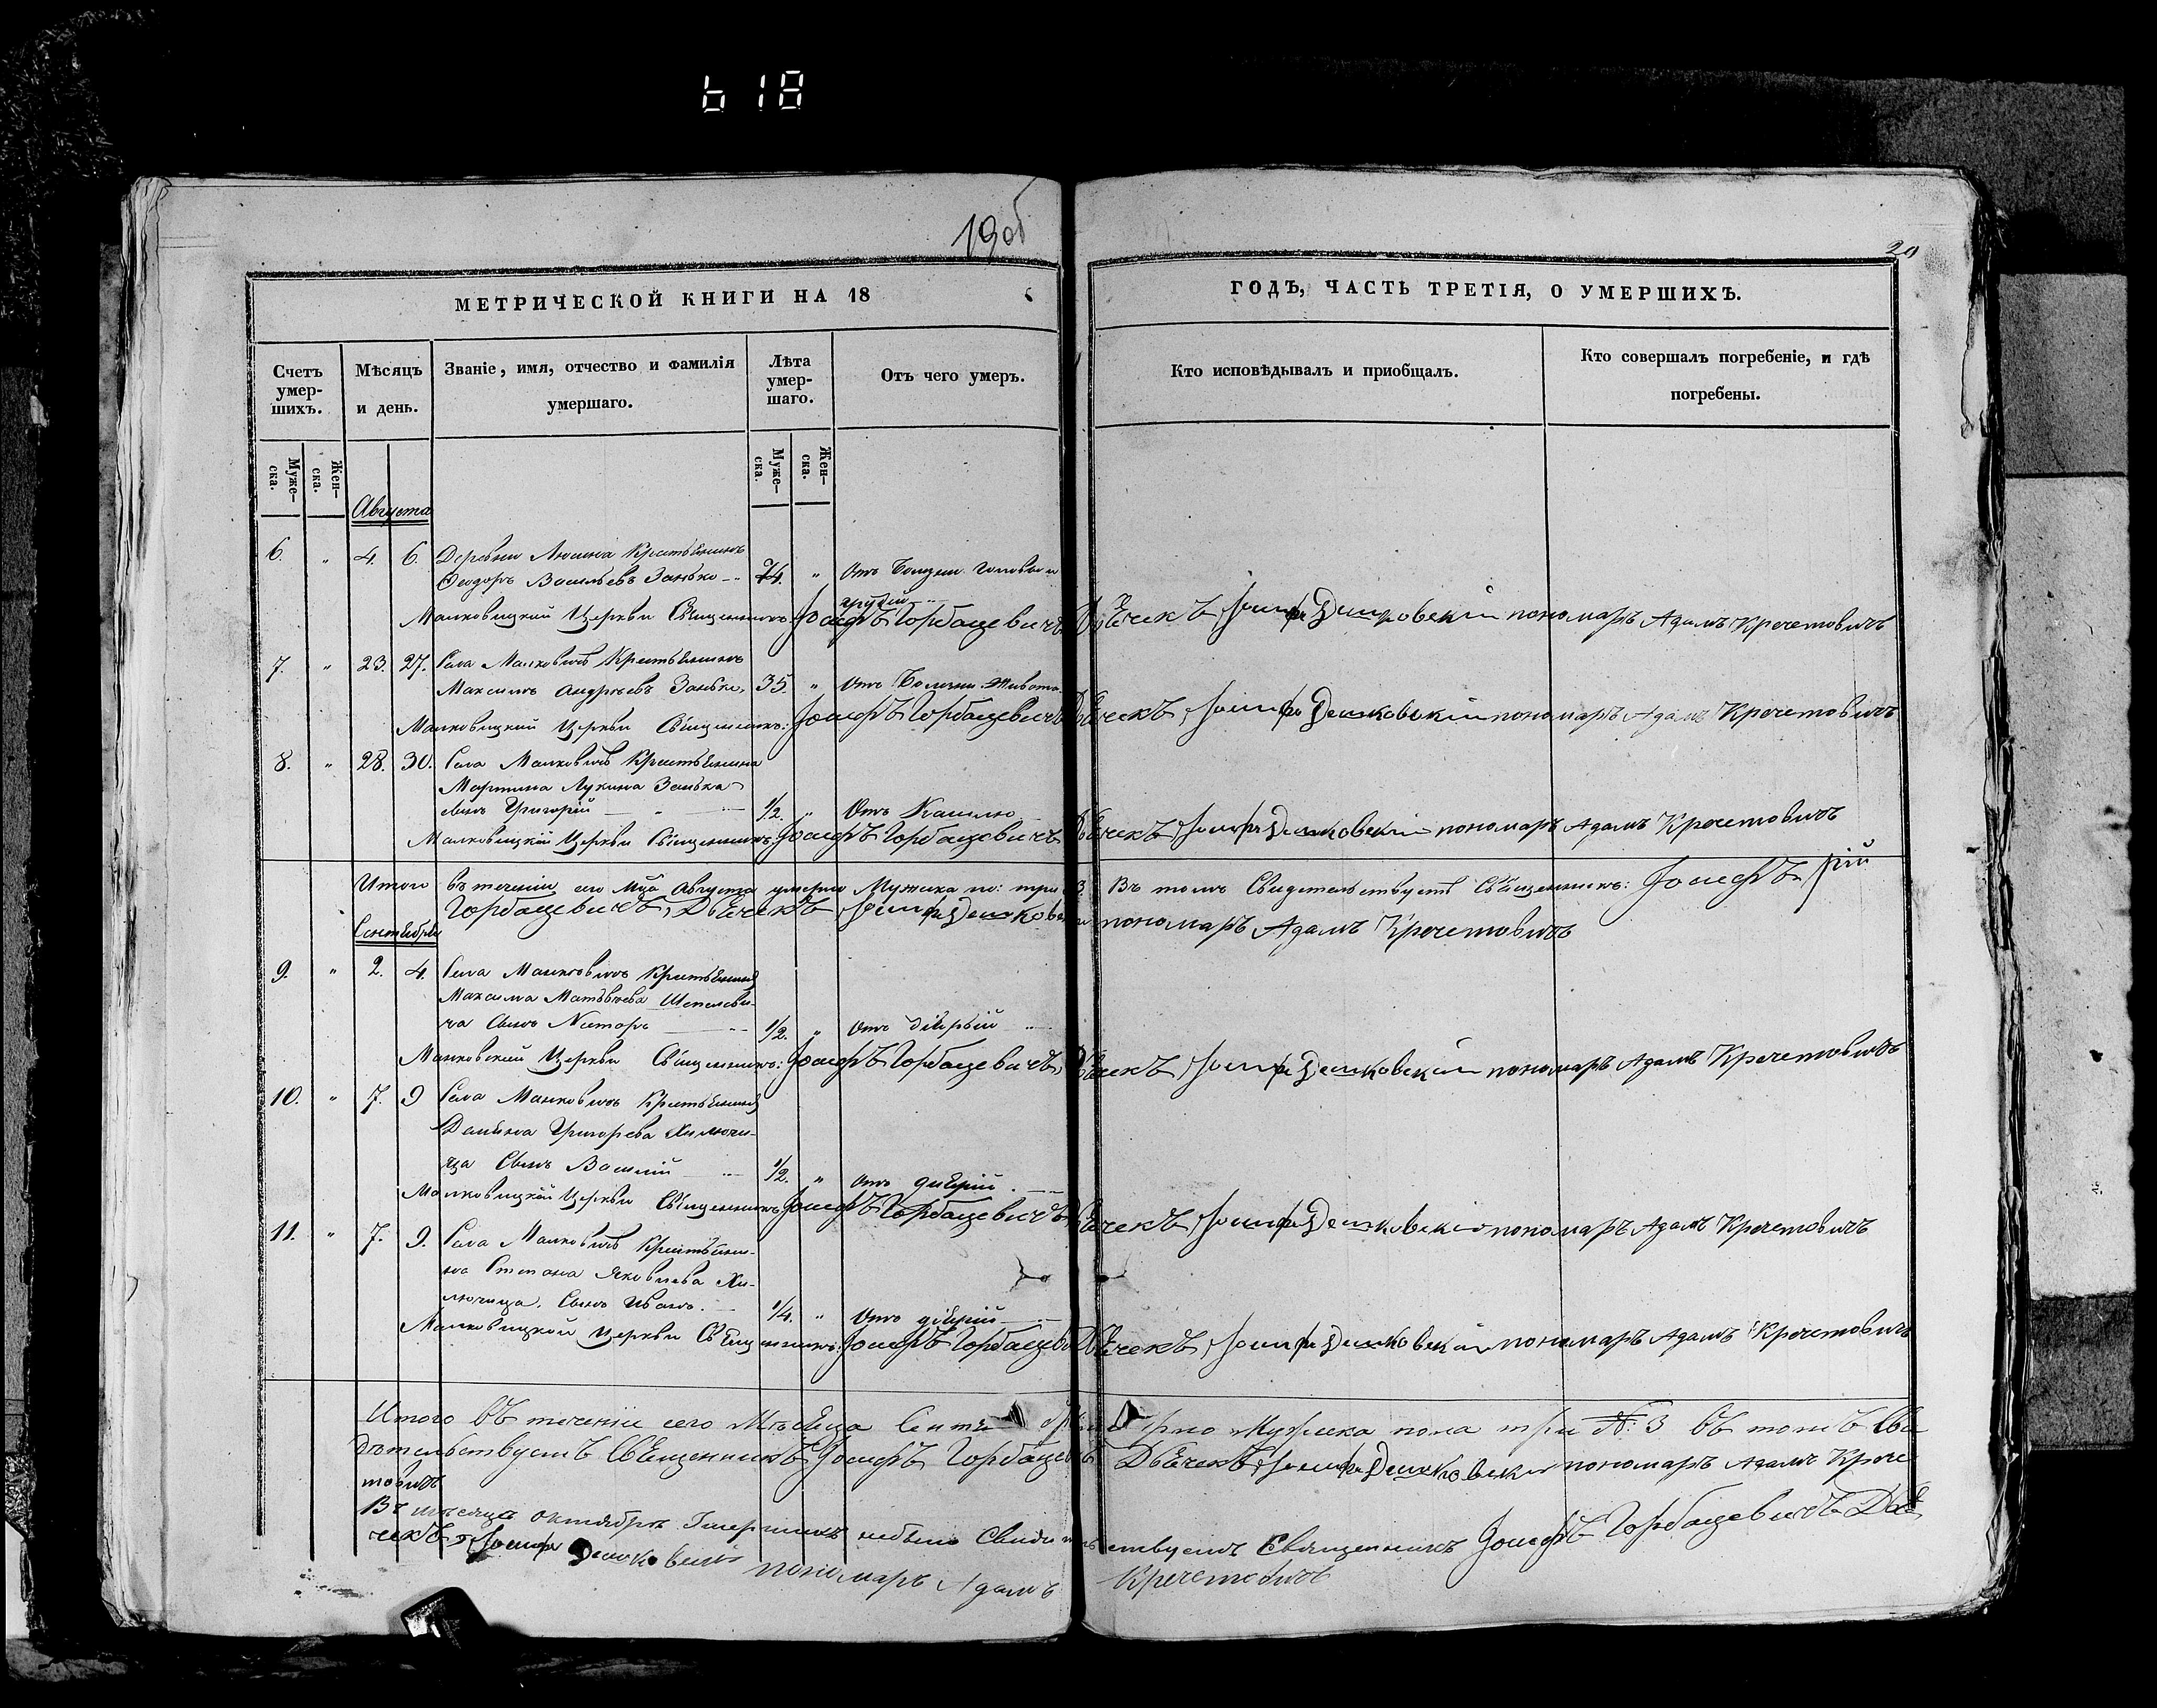 618
19об
20
МЕТРИЧЕСКОЙ КНИГИ НА 18
ГОДЪ, ЧАСТЬ ТРЕТІЯ, О УМЕРШИХЪ.
Счетъ умер-шихъ.
Мѣсяцъ и день.
Званіе, имя, отчество и фамилія умершаго.
Лѣта умер-шаго.
Отъ чего умеръ.
Кто исповѣдывалъ и пріобщалъ.
Кто совершалъ погребеніе, и гдѣ погребены.
Муже-ска.
Жен-ска.
Муже-ска.
Жен-ска.
Августа
6. " 4. 6. Деревни Крестьянинъ
Ѳеодоръ Васильевъ Занько 74. " Отъ Головы и
грудей
Малковицкій Церкви Священникъ Іосифъ Горбацевичъ Дьячекъ Іосифъ Дешковскій пономарь Адамъ Кречетовичъ
7. " 23. 27. Села Малковичъ Крестьянинъ
Максимъ Андреевъ Занько, 35. " Отъ Болезни Живота
Малковицкій Церкви Священникъ: Іосифъ Горбацевичъ Дьячекъ Іосифъ Дешковскій пономарь Адамъ Кречетовичъ
8. " 28. 30. Села Малковичъ Крестьянина
Мартина Лукина Занька
сынъ Григорій 1/2. " Отъ Кашлю
Малковицкій Церкви Священникъ Іосифъ Горбацевичъ Дьячекъ Іосифъ Дешковскій пономарь Адамъ Кречетовичъ
Итого въ теченіи сего Мца Августа умерло Мужска по: три 3 Въ томъ Свидетельствуетъ Священникъ: Іосифъ
Горбацевичъ, Дьячекъ Іосифъ Дешковскій пономарь Адамъ Кречетовичъ
Сентября
9. " 2. 4. Села Малковичъ Крестьянина
Максима Матвѣева Шепелеви-
ча Сынъ Несторъ 1/2. " Отъ діарыи
Малковскій Церкви Священникъ: Іосифъ Горбацевичъ, Дьячекъ Іосифъ Дешковскій пономарь Адамъ Кречетовичъ
10. " 7. 9 Села Малковичъ Крестьянина
Григорева Хилючи-
ца Сынъ Василій 1/2. " Отъ
Малковицкій Церкви Священникъ Іосифъ Горбацевичъ Дьячекъ Іосифъ Дешковскій пономарь Адамъ Кречетовичъ
11. " 7. 9. Села Малковичъ Крестьяни-
на Степана Яковлева Хи-
лючица. Сынъ Иванъ. 1/4. " Отъ
Малковицкой Церкви Священникъ: Іосифъ Горбацевичъ Дьячекъ Іосифъ Дешковскій пономарь Адамъ Кречетовичъ
Итого въ теченіи сего Мѣсяца Сентября умерло Мужеска пола три №: 3 въ томъ Сви
дѣтельствуетъ Священникъ Іосифъ Горбацевичъ Дьячекъ Іосифъ Дешковскій пономарь Адамъ Крече
товичъ
Въ мѣсяцѣ октябрѣ Умершихъ небыло Свидетельствуетъ Священникъ Іосифъ Горбацевичъ Дья
чекъ Іосифъ Дешковскій пономарь Адамъ Кречетовичъ